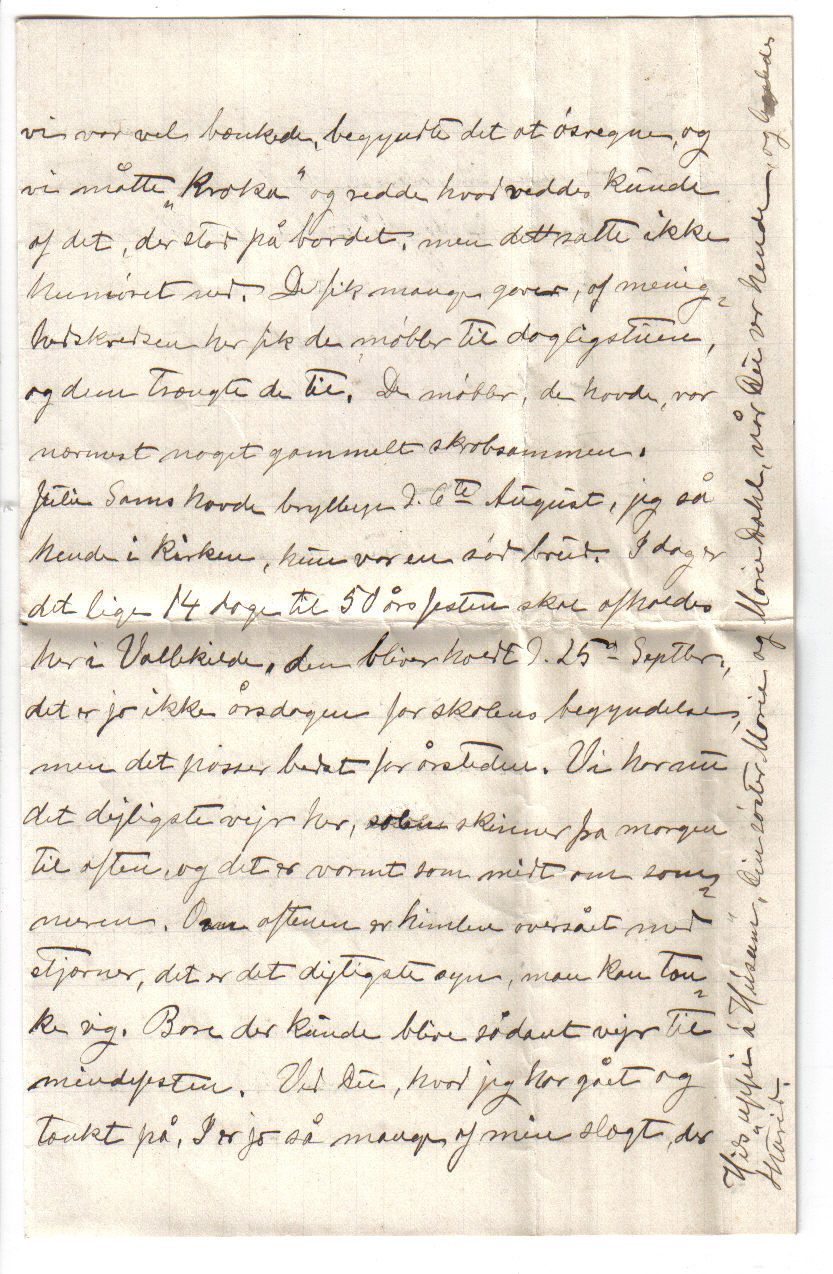 vi var vel bænkede, begyndte det at ósregne, og
vi måtte „Kroka" og redde hvad reddes kunde
af det, der stod på bordet, men det satte ikke
humóret ned. De fik mange gaver, af menig=
hedskredsen her fik de móbler til dagligstuen,
og dem trængte de til. De móbler, de havde, var
nærmest noget gammelt skrabsammen.
Julie Sams havde bryllup d. 6te August, jeg så
hende i kirken, hun var en sód brud. I dag er
det lige 14 dage til 50 års festen skal afholdes
her i Vallekilde, den bliver holdt d. 25d Septbr.,
det er jo ikke årsdagen for skolens begyndelse,
men det passer bedst for årstiden. Vi har nu
det dejligste vejr her, solen skinner fra morgen
til aften, og det er varmt som midt om som=
meren. Om aftenen er himlen oversået med
stjærner, det er det dejligste syn, man kan tæn=
ke sig. Bare der kunde blive sådant vejr til
mindefesten. Ved Du, hvad jeg har gået og
tænkt på, I er jo så mange af min slægt, der
Hils oppe i „Husum", Din sóster Marie og Marie Dahl, når Du ser hende, og
Marid.